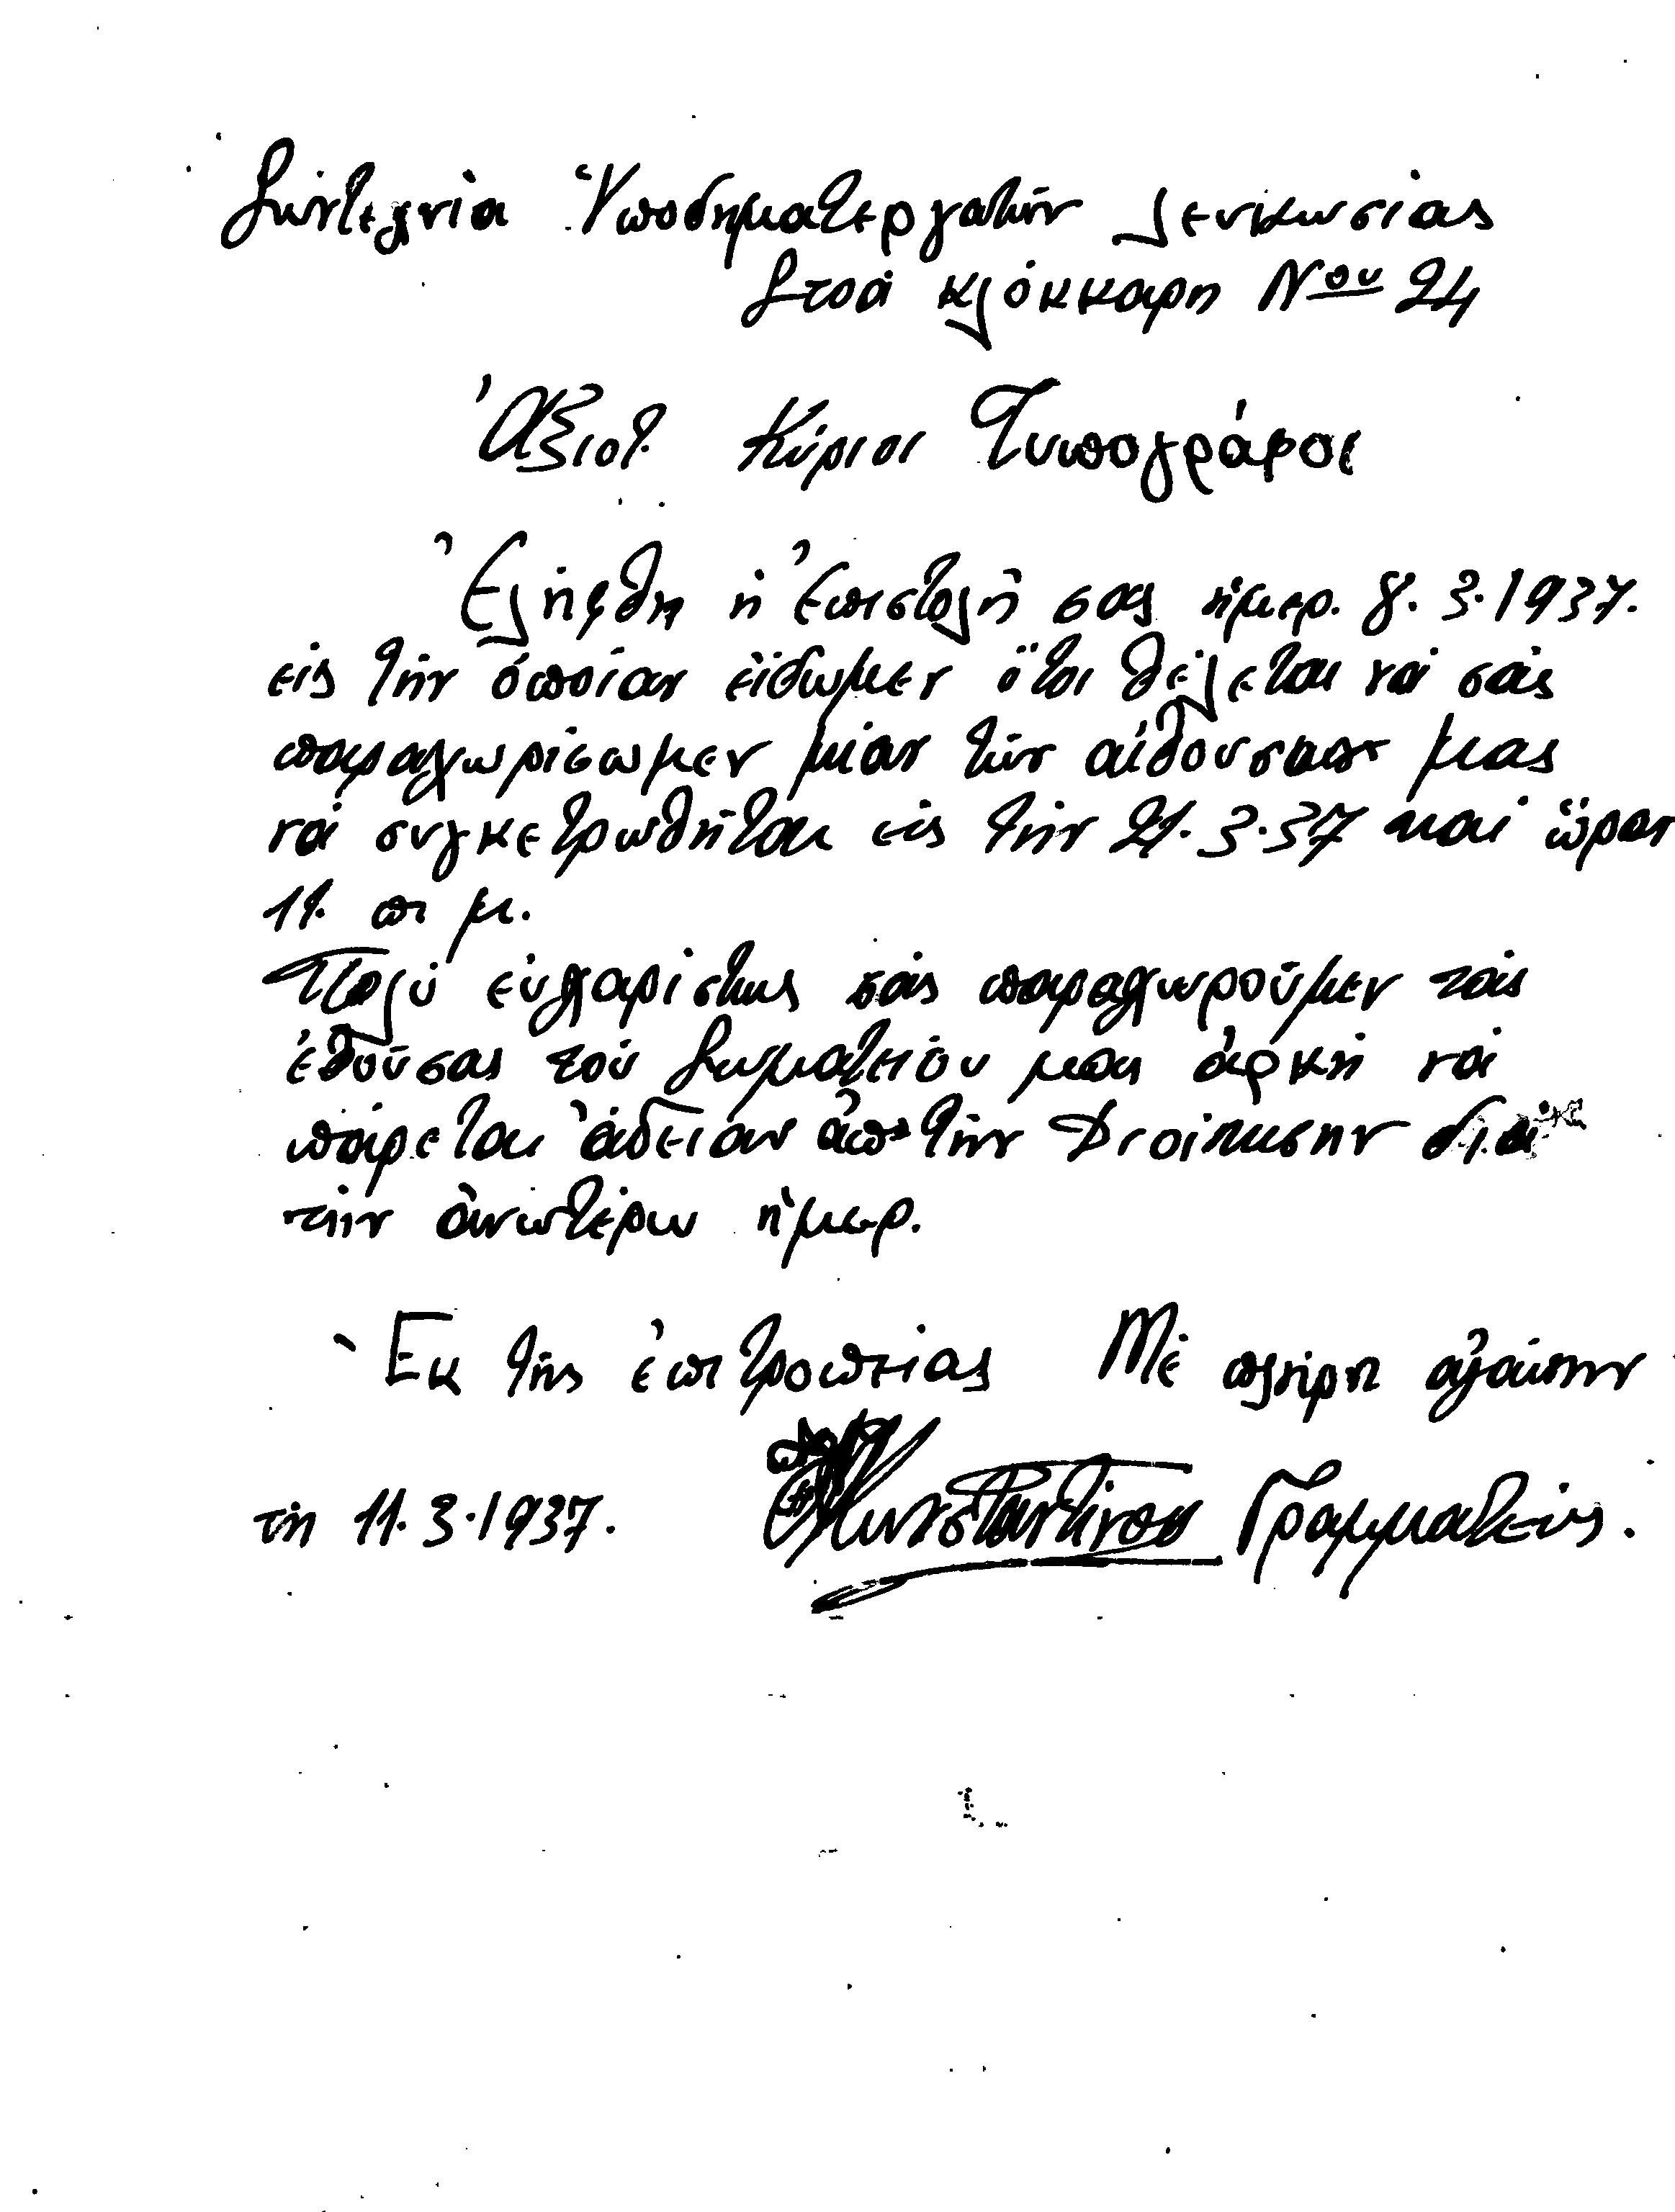 Συντεχνία Ὑποδηματεργατῶν Λευκωσίας
Στοά κλόκκαρη Νου 24
Ἀξιοτ. Κύριοι Τυπογράφοι
Ἐλήφθη ἡ Ἐπιστολή σας ἡμερ. 8. 3. 1937.
εἰς τήν ὁποίαν εἴδωμεν ὅτι θέλεται νά σᾶς
παραχωρίσωμεν μίαν τῶν αἰθουσῶν μας
νά συγκετρωθῆται εἰς τήν 21. 3. 37 καί ὥραν
11. π μ.
Πολύ εὐχαρίστως σᾶς παραχωροῦμεν τάς
ἐθούσας τοῦ Σωματείου μας ἀρκή νά
πάρεται ἄδειαν ἀπό τήν Διοίκησην διά
τήν ἀνωτέρω ἡμερ.
Ἐκ τῆς ἐπιτροπείας Μέ πλήρη ἀγάπην
τῇ 11. 3. 1937. Κωνσταντίνου Γραμματεύς.